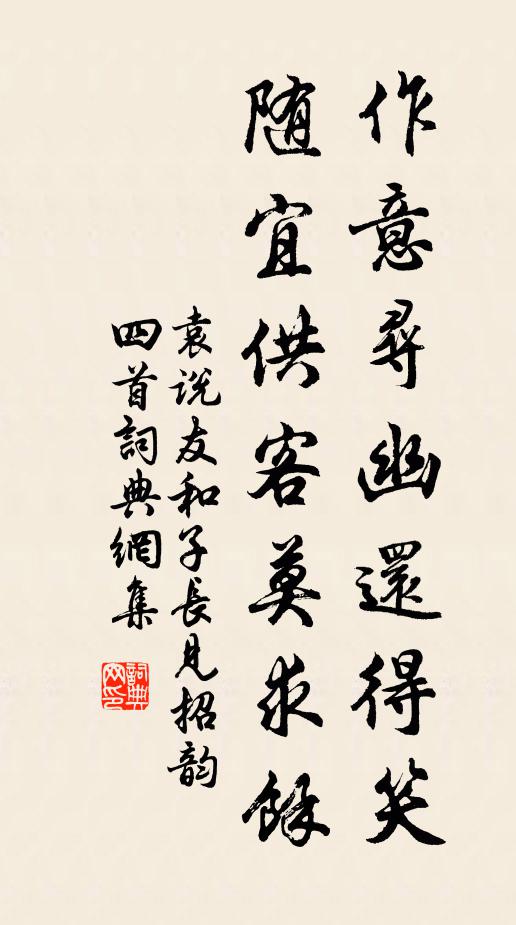 作意尋幽還得笑
随宜供客莫求餘
袁说友和子長見招韵
四首詞典網集
詞典
网印